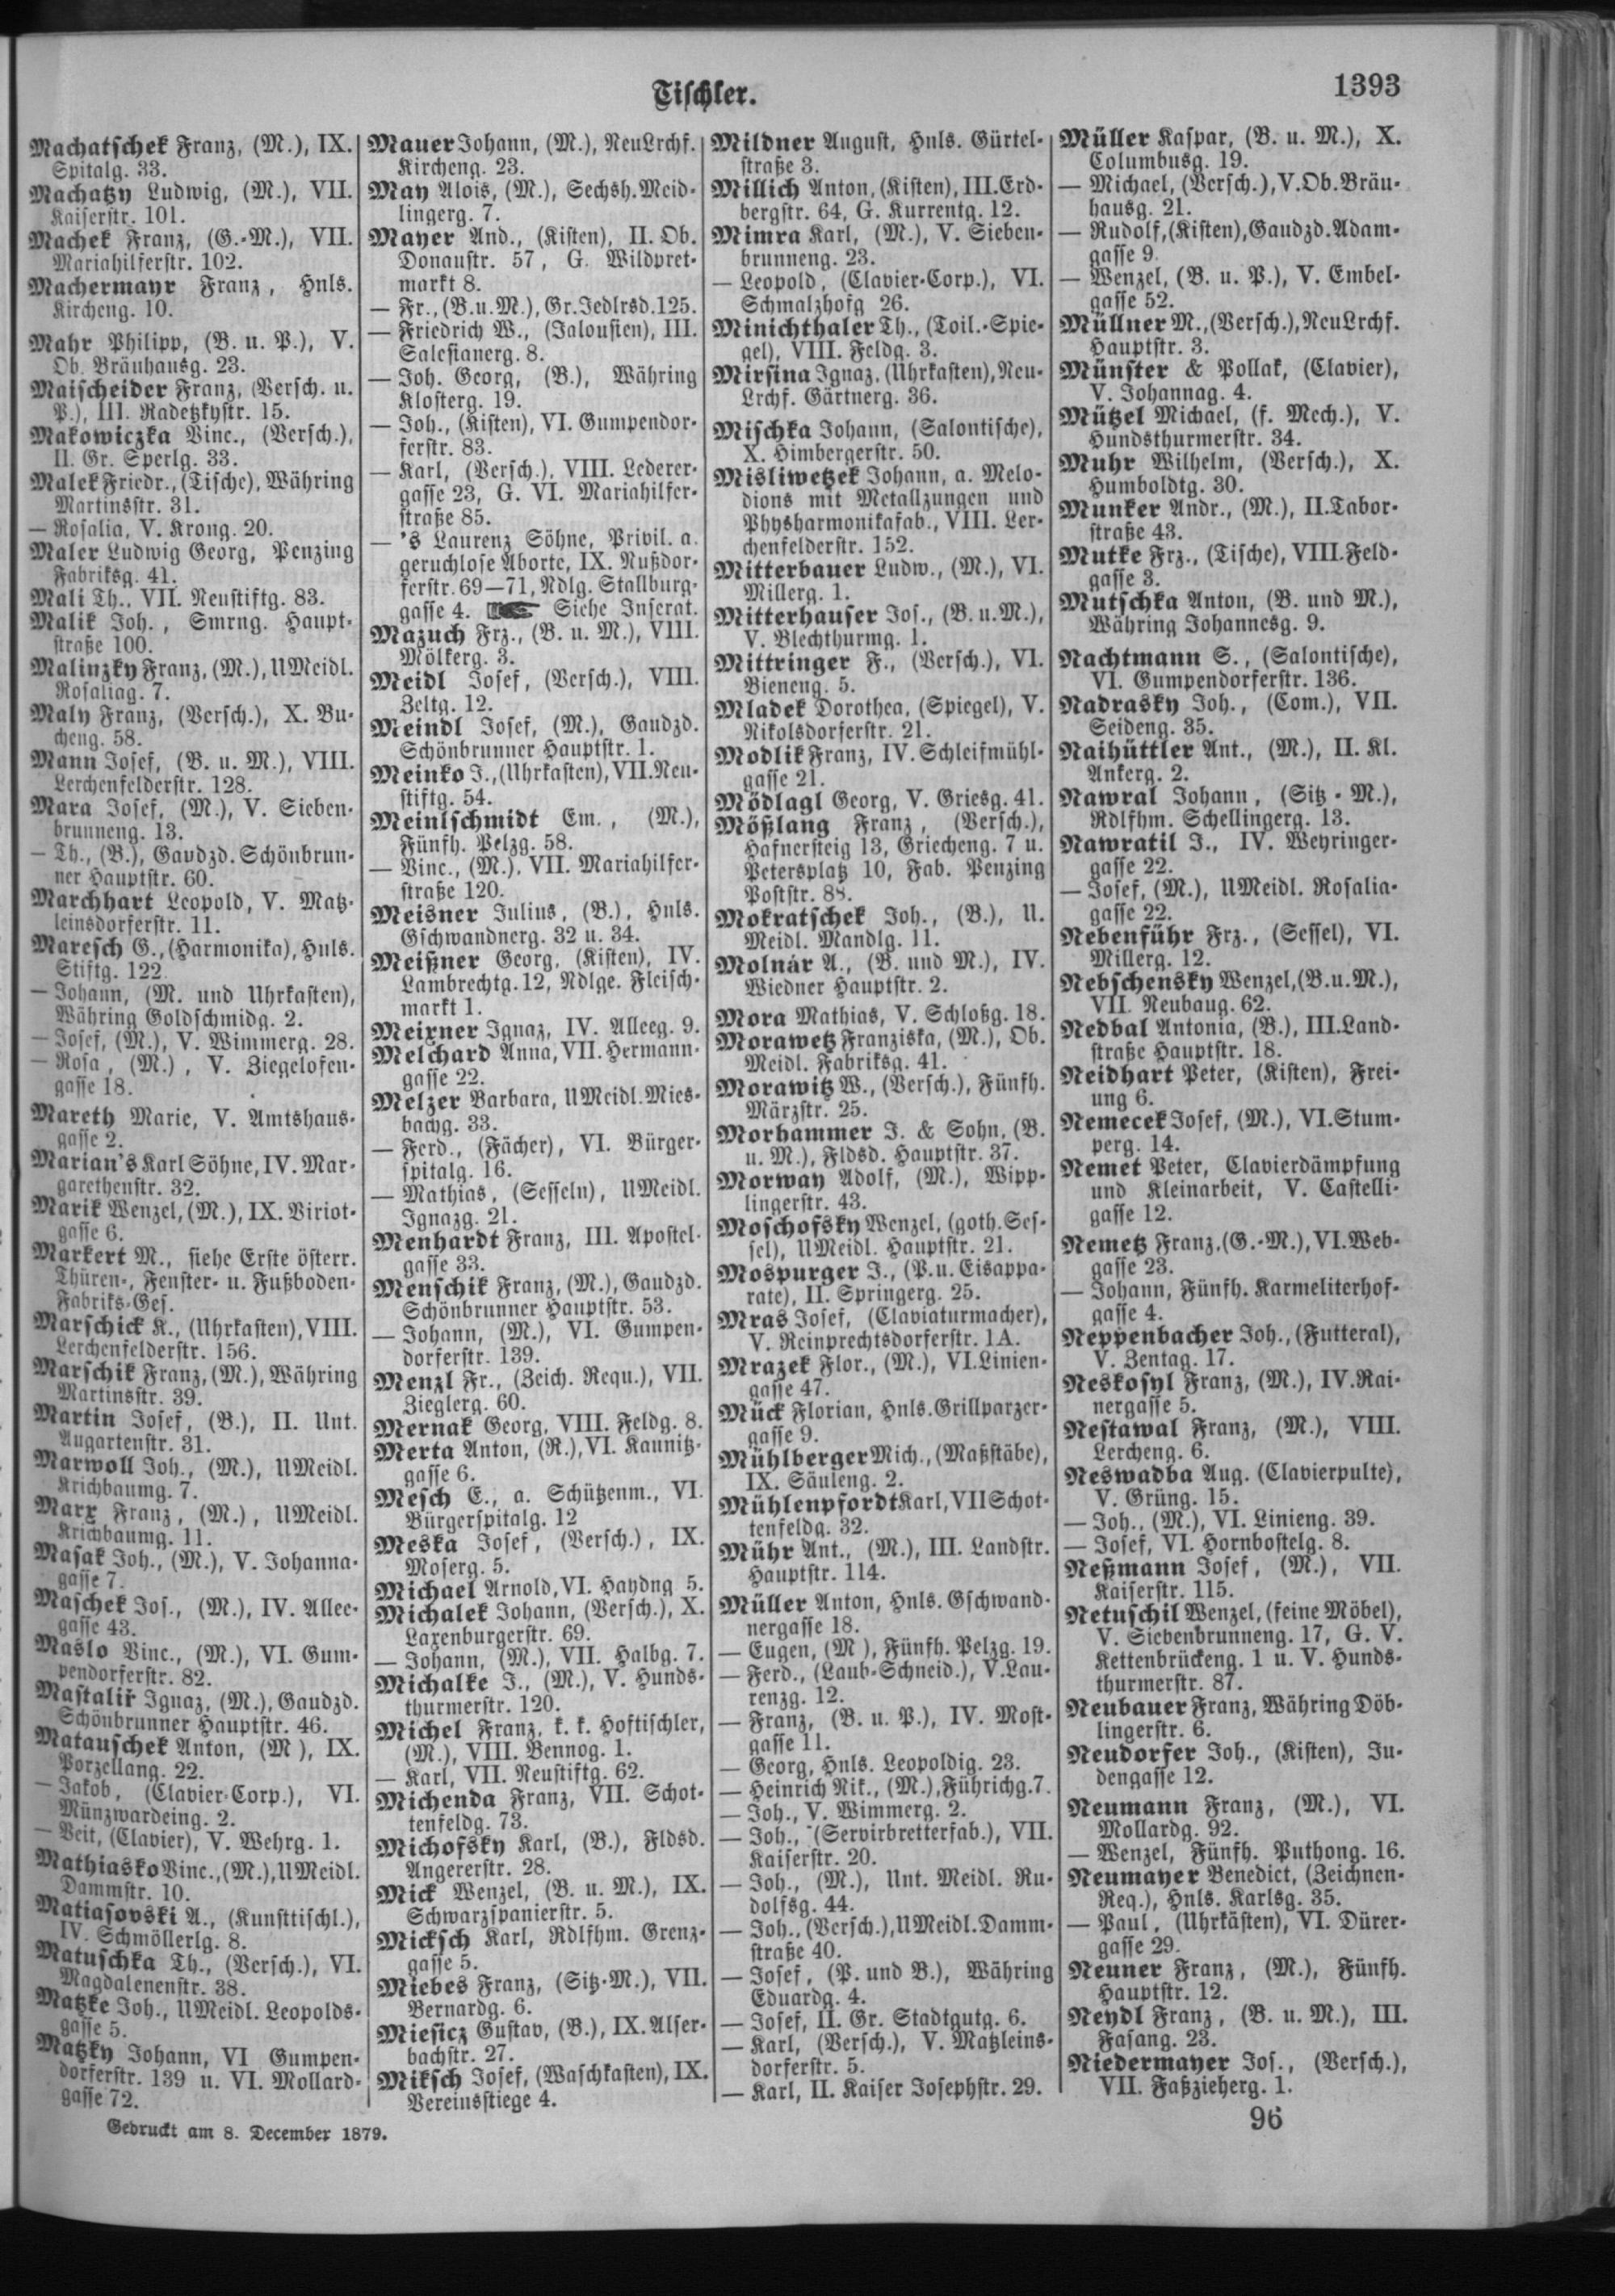 Tischler.
1393
Machatschek Franz, (M.), IX.
Spitalg. 33.
Machatzy Ludwig, (M.), VII.
Kaiserstr. 101.
Machek Franz, (G.-M.), VII.
Mariahilferstr. 102.
Machermayr Franz, Hnls.
Kircheng. 10.
Mahr Philipp, (B. u. P.), V.
Ob. Bräuhausg. 23.
Maischeider Franz, (Versch. u.
P.), III. Radetzkystr. 15.
Makowiczka Vinc., (Versch.),
II. Gr. Sperlg. 33.
Malek Friedr., (Tische), Währing
Martinsstr. 31.
— Rosalia, V. Krong. 20.
Maler Ludwig Georg, Penzing
Fabriksg. 41.
Mali Th., VII. Neustiftg. 83.
Malik Joh., Smrng. Haupt-
straße 100.
Malinzky Franz, (M.), UMeidl.
Rosaliag. 7.
Maly Franz, (Versch.), X. Bu-
cheng. 58.
Mann Josef, (B. u. M.), VIII.
Lerchenfelderstr. 128.
Mara Josef, (M.), V. Sieben-
brunneng. 13.
— Th., (B.), Gaudzd. Schönbrun-
ner Hauptstr. 60.
Marchhart Leopold, V. Matz-
leinsdorferstr. 11.
Maresch G., (Harmonika), Hnls.
Stiftg. 122.
— Johann, (M. und Uhrkasten),
Währing Goldschmidg. 2.
— Josef, (M.), V. Wimmerg. 28.
— Rosa, (M.), V. Ziegelofen-
gasse 18.
Mareth Marie, V. Amtshaus-
gasse 2.
Marian's Karl Söhne, IV. Mar-
garethenstr. 32.
Marik Wenzel, (M.), IX. Viriot-
gasse 6.
Markert M., siehe Erste österr.
Thüren-, Fenster- u. Fußboden-
Fabriks-Ges.
Marschick K., (Uhrkasten), VIII.
Lerchenfelderstr. 156.
Marschik Franz, (M.), Währing
Martinsstr. 39.
Martin Josef, (B.), II. Unt.
Augartenstr. 31.
Marwoll Joh., (M.), UMeidl.
Krichbaumg. 7.
Marx Franz, (M.), UMeidl.
Krichbaumg. 11.
Masak Joh., (M.), V. Johanna-
gasse 7.
Maschek Jos., (M.), IV. Allee-
gasse 43.
Maslo Vinc., (M.), VI. Gum-
pendorferstr. 82.
Mastaliř Ignaz, (M.), Gaudzd.
Schönbrunner Hauptstr. 46.
Matauschek Anton, (M), IX.
Porzellang. 22.
— Jakob, (Clavier-Corp.), VI.
Münzwardeing. 2.
— Veit, (Clavier), V. Wehrg. 1.
Mathiasko Vinc., (M.), UMeidl.
Dammstr. 10.
Matiasovski A., (Kunsttischl.),
IV. Schmöllerlg. 8.
Matuschka Th., (Versch.), VI.
Magdalenenstr. 38.
Matzke Joh., UMeidl. Leopolds-
gasse 5.
Matzky Johann, VI Gumpen-
dorferstr. 139 u. VI. Mollard-
gasse 72.
Mauer Johann, (M.), NeuLrchf.
Kircheng. 23.
May Alois, (M.), Sechsh. Meid-
lingerg. 7.
Mayer And., (Kisten), II. Ob.
Donaustr. 57, G. Wildpret-
markt 8.
— Fr., (B. u. M.), Gr. Jedlrsd. 125.
— Friedrich W., (Jalousien), III.
Salesianerg. 8.
— Joh. Georg, (B.), Währing
Klosterg. 19.
— Joh., (Kisten), VI. Gumpendor-
ferstr. 83.
— Karl, (Versch.), VIII. Lederer-
gasse 23, G. VI. Mariahilfer-
straße 85.
— 's Laurenz Söhne, Privil. a.
geruchlose Aborte, IX. Nußdor-
ferstr. 69—71, Ndlg. Stallburg-
gasse 4. Siehe Inserat.
Mazuch Frz., (B. u. M.), VIII.
Mölkerg. 3.
Meidl Josef, (Versch.), VIII.
Zeltg. 12.
Meindl Josef, (M.), Gaudzd.
Schönbrunner Hauptstr. 1.
Meinko J., (Uhrkasten), VII. Neu-
stiftg. 54.
Meinlschmidt Em., (M.),
Fünfh. Pelzg. 58.
— Vinc., (M.), VII. Mariahilfer-
straße 120.
Meisner Julius, (B.), Hnls.
Gschwandnerg. 32 u. 34.
Meißner Georg, (Kisten), IV.
Lambrechtg. 12, Ndlge. Fleisch-
markt 1.
Meixner Ignaz, IV. Alleeg. 9.
Melchard Anna, VII. Hermann-
gasse 22.
Melzer Barbara, UMeidl. Mies-
bachg. 33.
— Ferd., (Fächer), VI. Bürger-
spitalg. 16.
— Mathias, (Sesseln), UMeidl.
Ignazg. 21.
Menhardt Franz, III. Apostel-
gasse 33.
Menschik Franz, (M.), Gaudzd.
Schönbrunner Hauptstr. 53.
— Johann, (M.), VI. Gumpen-
dorferstr. 139.
Menzl Fr., (Zeich. Requ.), VII.
Zieglerg. 60.
Mernak Georg, VIII. Feldg. 8.
Merta Anton, (R.), VI. Kaunitz-
gasse 6.
Mesch E., a. Schützenm., VI.
Bürgerspitalg. 12
Meska Josef, (Versch.), IX.
Moserg. 5.
Michael Arnold, VI. Haydng 5.
Michalek Johann, (Versch.), X.
Laxenburgerstr. 69.
— Johann, (M.), VII. Halbg. 7.
Michalke J., (M.), V. Hunds-
thurmerstr. 120.
Michel Franz, k. k. Hoftischler,
(M.), VIII. Bennog. 1.
— Karl, VII. Neustiftg. 62.
Michenda Franz, VII. Schot-
tenfeldg. 73.
Michofsky Karl, (B.), Fldsd.
Angererstr. 28.
Mick Wenzel, (B. u. M.), IX.
Schwarzspanierstr. 5.
Micksch Karl, Rdlfhm. Grenz-
gasse 5.
Miebes Franz, (Sitz-M.), VII.
Bernardg. 6.
Miesicz Gustav, (B.), IX. Alser-
bachstr. 27.
Miksch Josef, (Waschkasten), IX.
Vereinsstiege 4.
Mildner August, Hnls. Gürtel-
straße 3.
Millich Anton, (Kisten), III. Erd-
bergstr. 64, G. Kurrentg. 12.
Mimra Karl, (M.), V. Sieben-
brunneng. 23.
— Leopold, (Clavier-Corp.), VI.
Schmalzhofg 26.
Minichthaler Th., (Toil.-Spie-
gel), VIII. Feldg. 3.
Mirsina Ignaz, (Uhrkasten), Neu-
Lrchf. Gärtnerg. 36.
Mischka Johann, (Salontische),
X. Himbergerstr. 50.
Misliwetzek Johann, a. Melo-
dions mit Metallzungen und
Physharmonikafab., VIII. Ler-
chenfelderstr. 152.
Mitterbauer Ludw., (M.), VI.
Millerg. 1.
Mitterhauser Jos., (B. u. M.),
V. Blechthurmg. 1.
Mittringer F., (Versch.), VI.
Bieneng. 5.
Mladek Dorothea, (Spiegel), V.
Nikolsdorferstr. 21.
Modlik Franz, IV. Schleifmühl-
gasse 21.
Mödlagl Georg, V. Griesg. 41.
Mößlang Franz, (Versch.),
Hafnersteig 13, Griecheng. 7 u.
Petersplatz 10, Fab. Penzing
Poststr. 88.
Mokratschek Joh., (B.), U.
Meidl. Mandlg. 11.
Molnár A., (B. und M.), IV.
Wiedner Hauptstr. 2.
Mora Mathias, V. Schloßg. 18.
Morawetz Franziska, (M.), Ob.
Meidl. Fabriksg. 41.
Morawitz W., (Versch.), Fünfh.
Märzstr. 25.
Morhammer J. & Sohn, (B.
u. M.), Fldsd. Hauptstr. 37.
Morway Adolf, (M.), Wipp-
lingerstr. 43.
Moschofsky Wenzel, (goth. Ses-
sel), UMeidl. Hauptstr. 21.
Mospurger J., (P. u. Eisappa-
rate), II. Springerg. 25.
Mras Josef, (Claviaturmacher),
V. Reinprechtsdorferstr. 1A.
Mrazek Flor., (M.), VI. Linien-
gasse 47.
Mück Florian, Hnls. Grillparzer-
gasse 9.
Mühlberger Mich., (Maßstäbe),
IX. Säuleng. 2.
Mühlenpfordt Karl, VII Schot-
tenfeldg. 32.
Mühr Ant., (M.), III. Landstr.
Hauptstr. 114.
Müller Anton, Hnls. Gschwand-
nergasse 18.
— Eugen, (M ), Fünfh. Pelzg. 19.
— Ferd., (Laub-Schneid.), V. Lau-
renzg. 12.
— Franz, (B. u. P.), IV. Most-
gasse 11.
— Georg, Hnls. Leopoldig. 23.
— Heinrich Nik., (M.), Führichg. 7.
— Joh., V. Wimmerg. 2.
— Joh., (Servirbretterfab.), VII.
Kaiserstr. 20.
— Joh., (M.), Unt. Meidl. Ru-
dolfsg. 44.
— Joh., (Versch.), UMeidl. Damm-
straße 40.
— Josef, (P. und B.), Währing
Eduardg. 4.
— Josef, II. Gr. Stadtgutg. 6.
— Karl, (Versch.), V. Matzleins-
dorferstr. 5.
— Karl, II. Kaiser Josephstr. 29.
Müller Kaspar, (B. u. M.), X.
Columbusg. 19.
— Michael, (Versch.), V. Ob. Bräu-
hausg. 21.
— Rudolf, (Kisten), Gaudzd. Adam-
gasse 9.
— Wenzel, (B. u. P.), V. Embel-
gasse 52.
Müllner M., (Versch.), NeuLrchf.
Hauptstr. 3.
Münster & Pollak, (Clavier),
V. Johannag. 4.
Mützel Michael, (f. Mech.), V.
Hundsthurmerstr. 34.
Muhr Wilhelm, (Versch.), X.
Humboldtg. 30.
Munker Andr., (M.), II. Tabor-
straße 43.
Mutke Frz., (Tische), VIII. Feld-
gasse 3.
Mutschka Anton, (B. und M.),
Währing Johannesg. 9.
Nachtmann S., (Salontische),
VI. Gumpendorferstr. 136.
Nadrasky Joh., (Com.), VII.
Seideng. 35.
Naihüttler Ant., (M.), II. Kl.
Ankerg. 2.
Nawral Johann, (Sitz-M.),
Rdlfhm. Schellingerg. 13.
Nawratil J., IV. Weyringer-
gasse 22.
— Josef, (M.), UMeidl. Rosalia-
gasse 22.
Nebenführ Frz., (Sessel), VI.
Millerg. 12.
Nebschensky Wenzel, (B. u. M.),
VII. Neubaug. 62.
Nedbal Antonia, (B.), III. Land-
straße Hauptstr. 18.
Neidhart Peter, (Kisten), Frei-
ung 6.
Nemecek Josef, (M.), VI. Stum-
perg. 14.
Nemet Peter, Clavierdämpfung
und Kleinarbeit, V. Castelli-
gasse 12.
Nemetz Franz, (G.-M.), VI. Web-
gasse 23.
— Johann, Fünfh. Karmeliterhof-
gasse 4.
Neppenbacher Joh., (Futteral),
V. Zentag. 17.
Neskosyl Franz, (M.), IV. Rai-
nergasse 5.
Nestawal Franz, (M.), VIII.
Lercheng. 6.
Neswadba Aug. (Clavierpulte),
V. Grüng. 15.
— Joh., (M.), VI. Linieng. 39.
— Josef, VI. Hornbostelg. 8.
Neßmann Josef, (M.), VII.
Kaiserstr. 115.
Netuschil Wenzel, (feine Möbel),
V. Siebenbrunneng. 17, G. V.
Kettenbrückeng. 1 u. V. Hunds-
thurmerstr. 87.
Neubauer Franz, Währing Döb-
lingerstr. 6.
Neudorfer Joh., (Kisten), Ju-
dengasse 12.
Neumann Franz, (M.), VI.
Mollardg. 92.
— Wenzel, Fünfh. Puthong. 16.
Neumayer Benedict, (Zeichnen-
Req.), Hnls. Karlsg. 35.
— Paul, (Uhrkästen), VI. Dürer-
gasse 29.
Neuner Franz, (M.), Fünfh.
Hauptstr. 12.
Neydl Franz, (B. u. M.), III.
Fasang. 23.
Niedermayer Jos., (Versch.),
VII. Faßzieherg. 1.
Gedruckt am 8. December 1879.
96